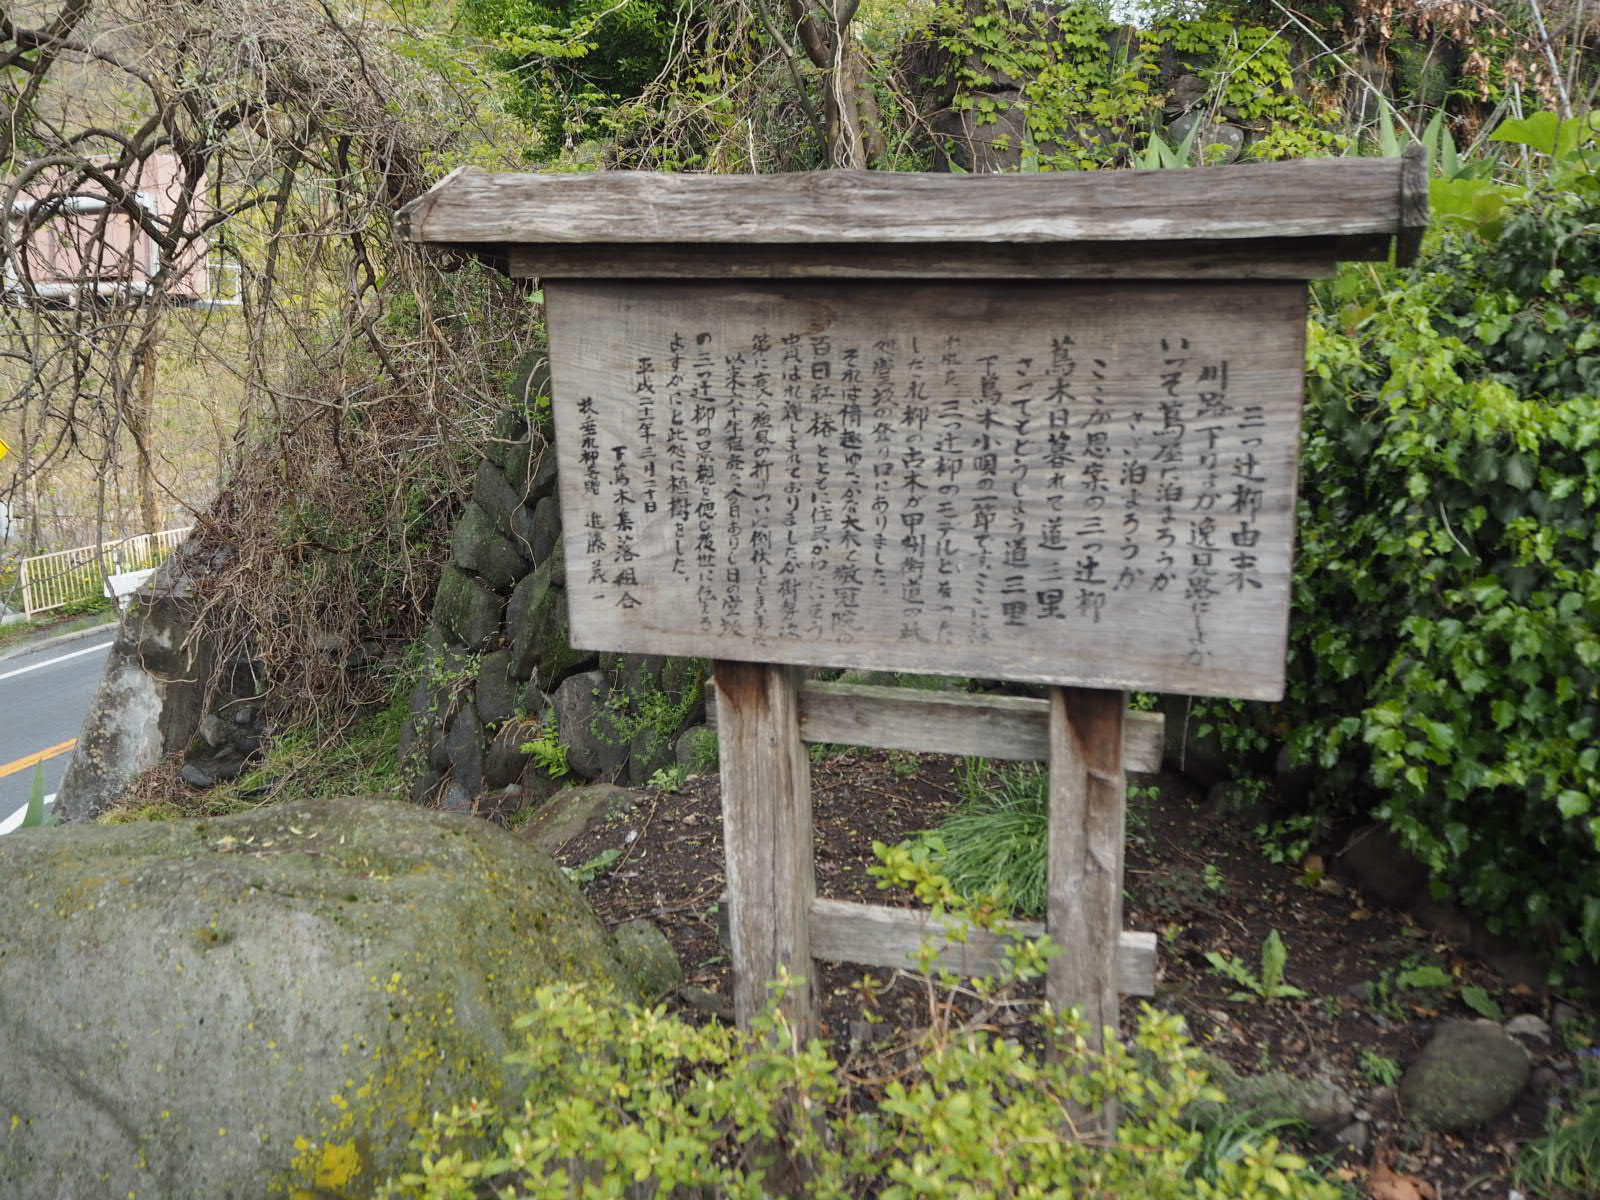 三つ辻柳由来
川路下りょか逸見路にしよか
いっそ蔦屋に泊まろうか
さゝ泊よろうか
ここが思案の三つ辻柳
蔦木日暮れて道三里
さってもどうしよう道三里
下蔦木小唄の一節です。ここに
三つ辻柳のモデルとなった
しだれ柳の古木が甲州街道の
処 坂の登り口にありました。
それは情趣ゆたかな大木で敬冠院の
百日紅、椿とともに住民が
は れ親しまれておりましたが樹勢次
第に衰へ強風の折りついに倒伏してしまいました
以来六十年程経た今日ありし日の
の三つ辻柳の景観を偲び後世に伝える
よすがにと此処に植樹をした。
平成二十二年三月二十日
下蔦木集落組合
枝垂れ柳奉贈 進藤義一